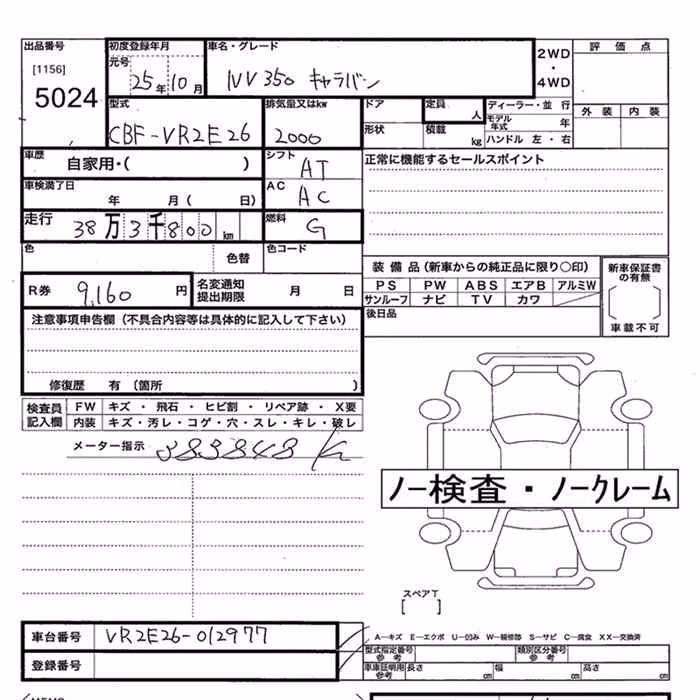 出品番号 初度登録年月 車名・グレード 2WD・4WD 評価点
[1156] 元号
5024 25年10月 NV350 キャラバン 外装 内装
型式 排気量又はkw ドア 定員 人 ディーラー・並行
CBF-VR2E26 2000 形状 積載 kg モデル年式 年
ハンドル 左・右
車歴 自家用・( ) シフト AT 正常に機能するセールスポイント
車検満了日 年 月( 日) AC AC
走行 38万3千800km 燃料 G
色 色替 色コード
装備品(新車からの純正品に限り○印) 新車保証書の有無
R券 9,160円 名変通知提出期限 月 日 PS PW ABS エアB アルミW
サンルーフ ナビ TV カワ
注意事項申告欄(不具合内容等は具体的に記入して下さい) 後日品 車載不可
修復歴 有(箇所 )
検査員記入欄 FW キズ・飛石・ヒビ割・リペア跡・X要
内装 キズ・汚レ・コゲ・穴・スレ・キレ・破レ
メーター指示 383848 K
ノー検査・ノークレーム
スペアT
[ ]
車台番号 VR2E26-012977 A-キズ E-エクボ U-凹み W-補修跡 S-サビ C-腐食 XX-交換済
型式指定番号参考 類別区分番号参考
登録番号 車庫証明用参考 長さ cm 幅 cm 高さ cm
MEMO